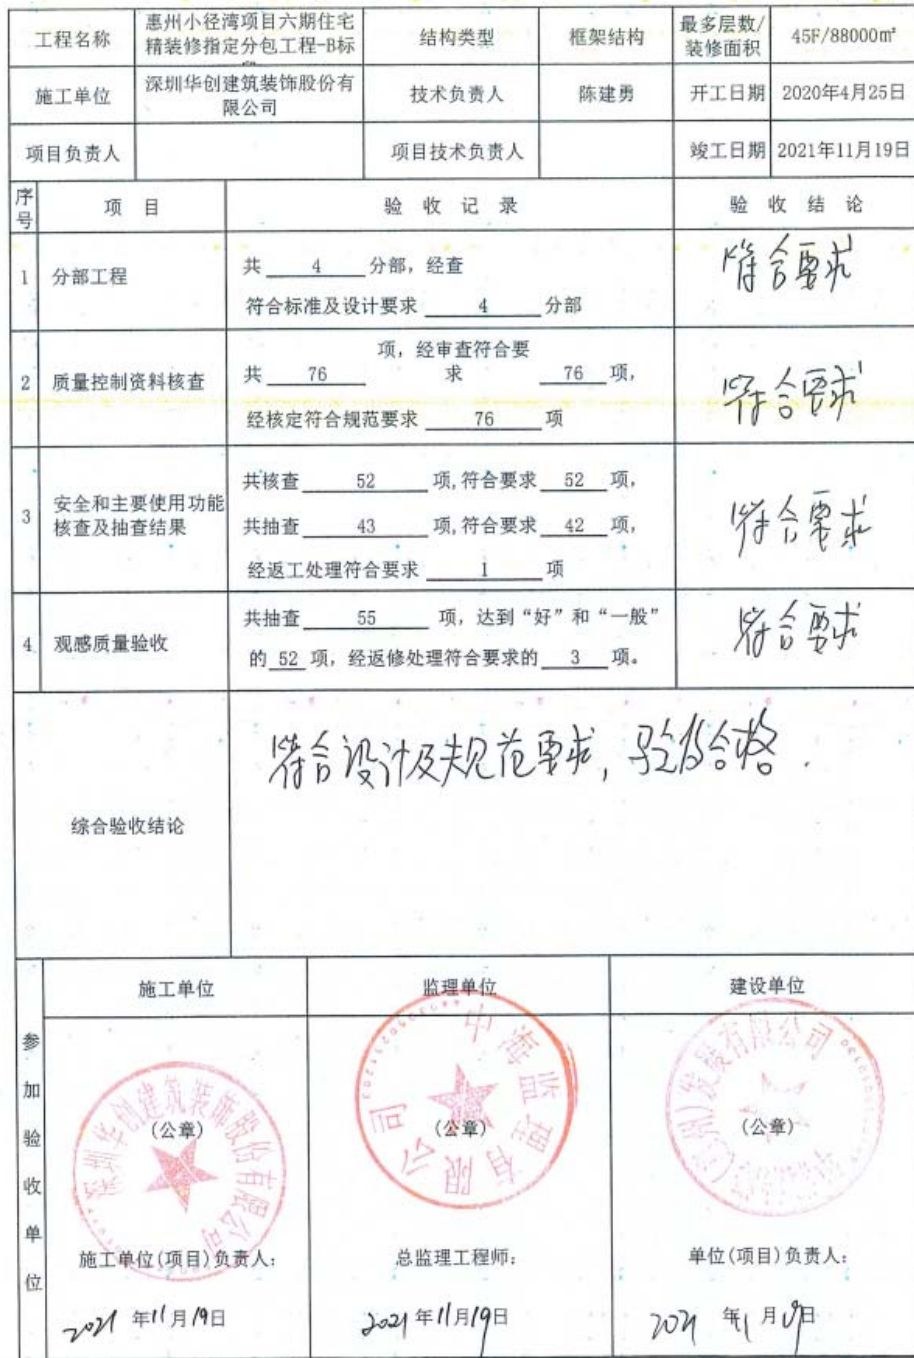 工程名称
惠州小径湾项目六期住宅
精装修指定分包工程-B标
结构类型
框架结构
最多层数/
装修面积
45F/88000㎡
施工单位
深圳华创建筑装饰股份有
限公司
技术负责人
陈建勇
开工日期
2020年4月25日
项目负责人
项目技术负责人
竣工日期
2021年11月19日
序
号
项 目
验 收 记 录
验 收 结 论
1
分部工程
共 4 分部，经查
符合标准及设计要求 4 分部
符合要求
2
质量控制资料核查
项，经审查符合要
共 76 求 76 项，
经核定符合规范要求 76 项
符合要求
3
安全和主要使用功能
核查及抽查结果
共核查 52 项,符合要求 52 项，
共抽查 43 项,符合要求 42 项，
经返工处理符合要求 1 项
符合要求
4
观感质量验收
共抽查 55 项，达到“好”和“一般”
的 52 项，经返修处理符合要求的 3 项。
符合要求
综合验收结论
符合设计及规范要求，验收合格．
参加验收单位
施工单位
监理单位
建设单位
深圳华创建筑装饰股份有限公司
中海监理有限公司
发展有限公司
(公章)
(公章)
(公章)
施工单位(项目)负责人：
总监理工程师：
单位(项目)负责人：
2021 年11月19日
2021 年11月19日
2021 年11月19日